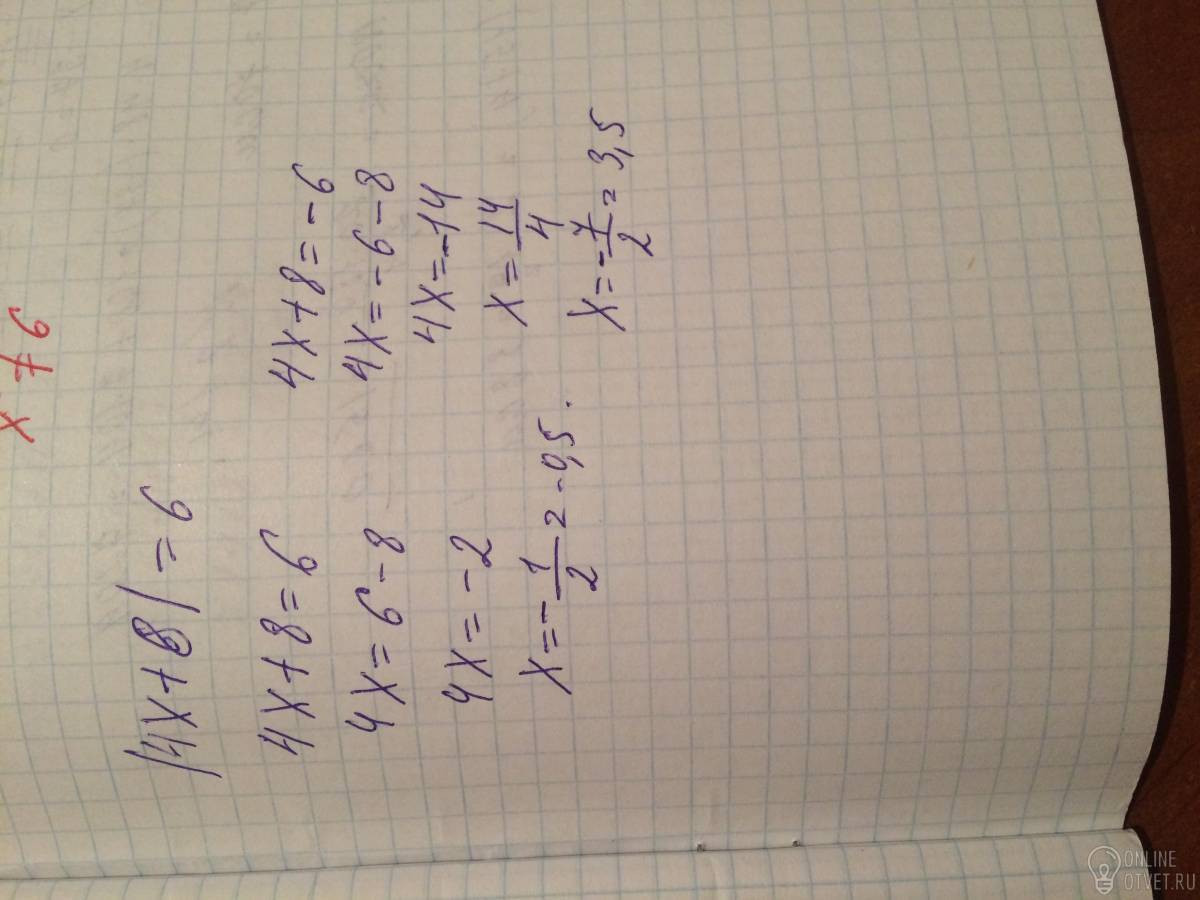 x ≠ 6
|4x+8| = 6
4x+8=6
4x=6-8
4x=-2
x=-1/2=-0,5.
4x+8=-6
4x=-6-8
4x=-14
x=14/4
x=-7/2=3,5
ONLINE
OTVET.RU